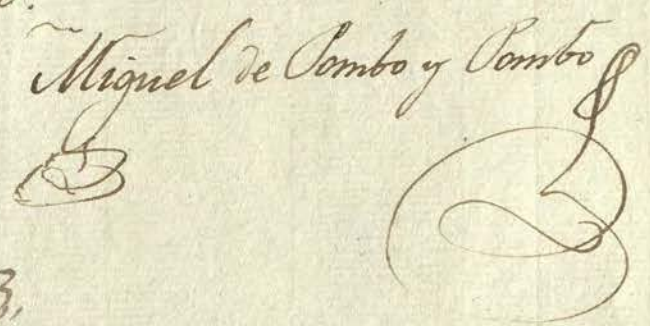 Miguel de Pombo y Pombo